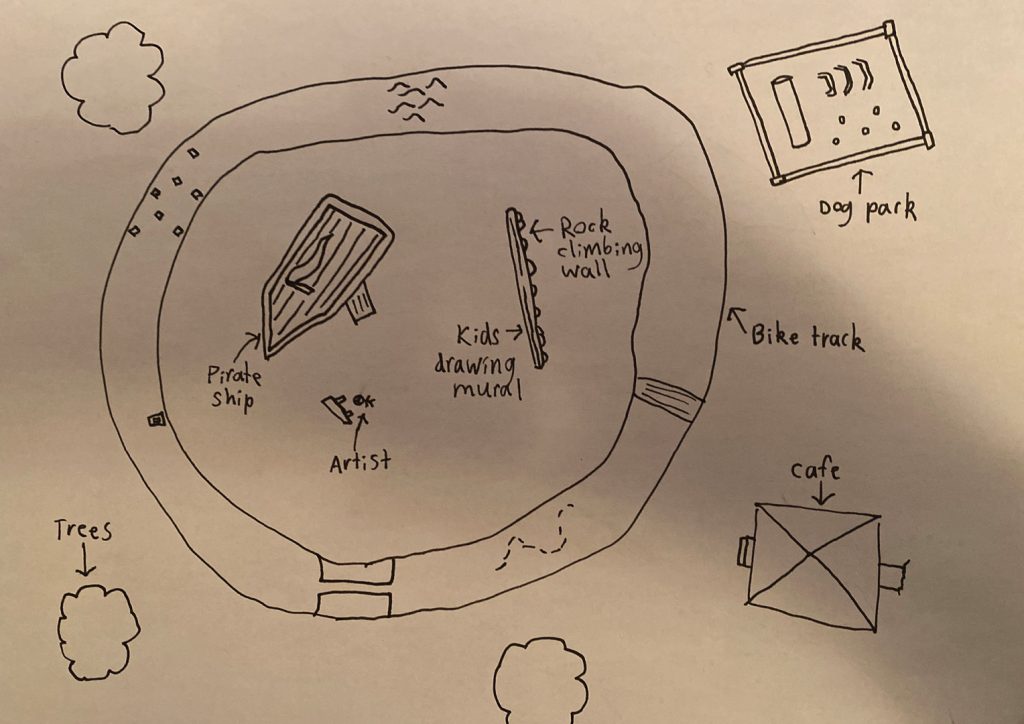 Dog park
Rock
climbing
wall
Kids
drawing
mural
Bike track
Pirate
ship
Artist
cafe
Trees